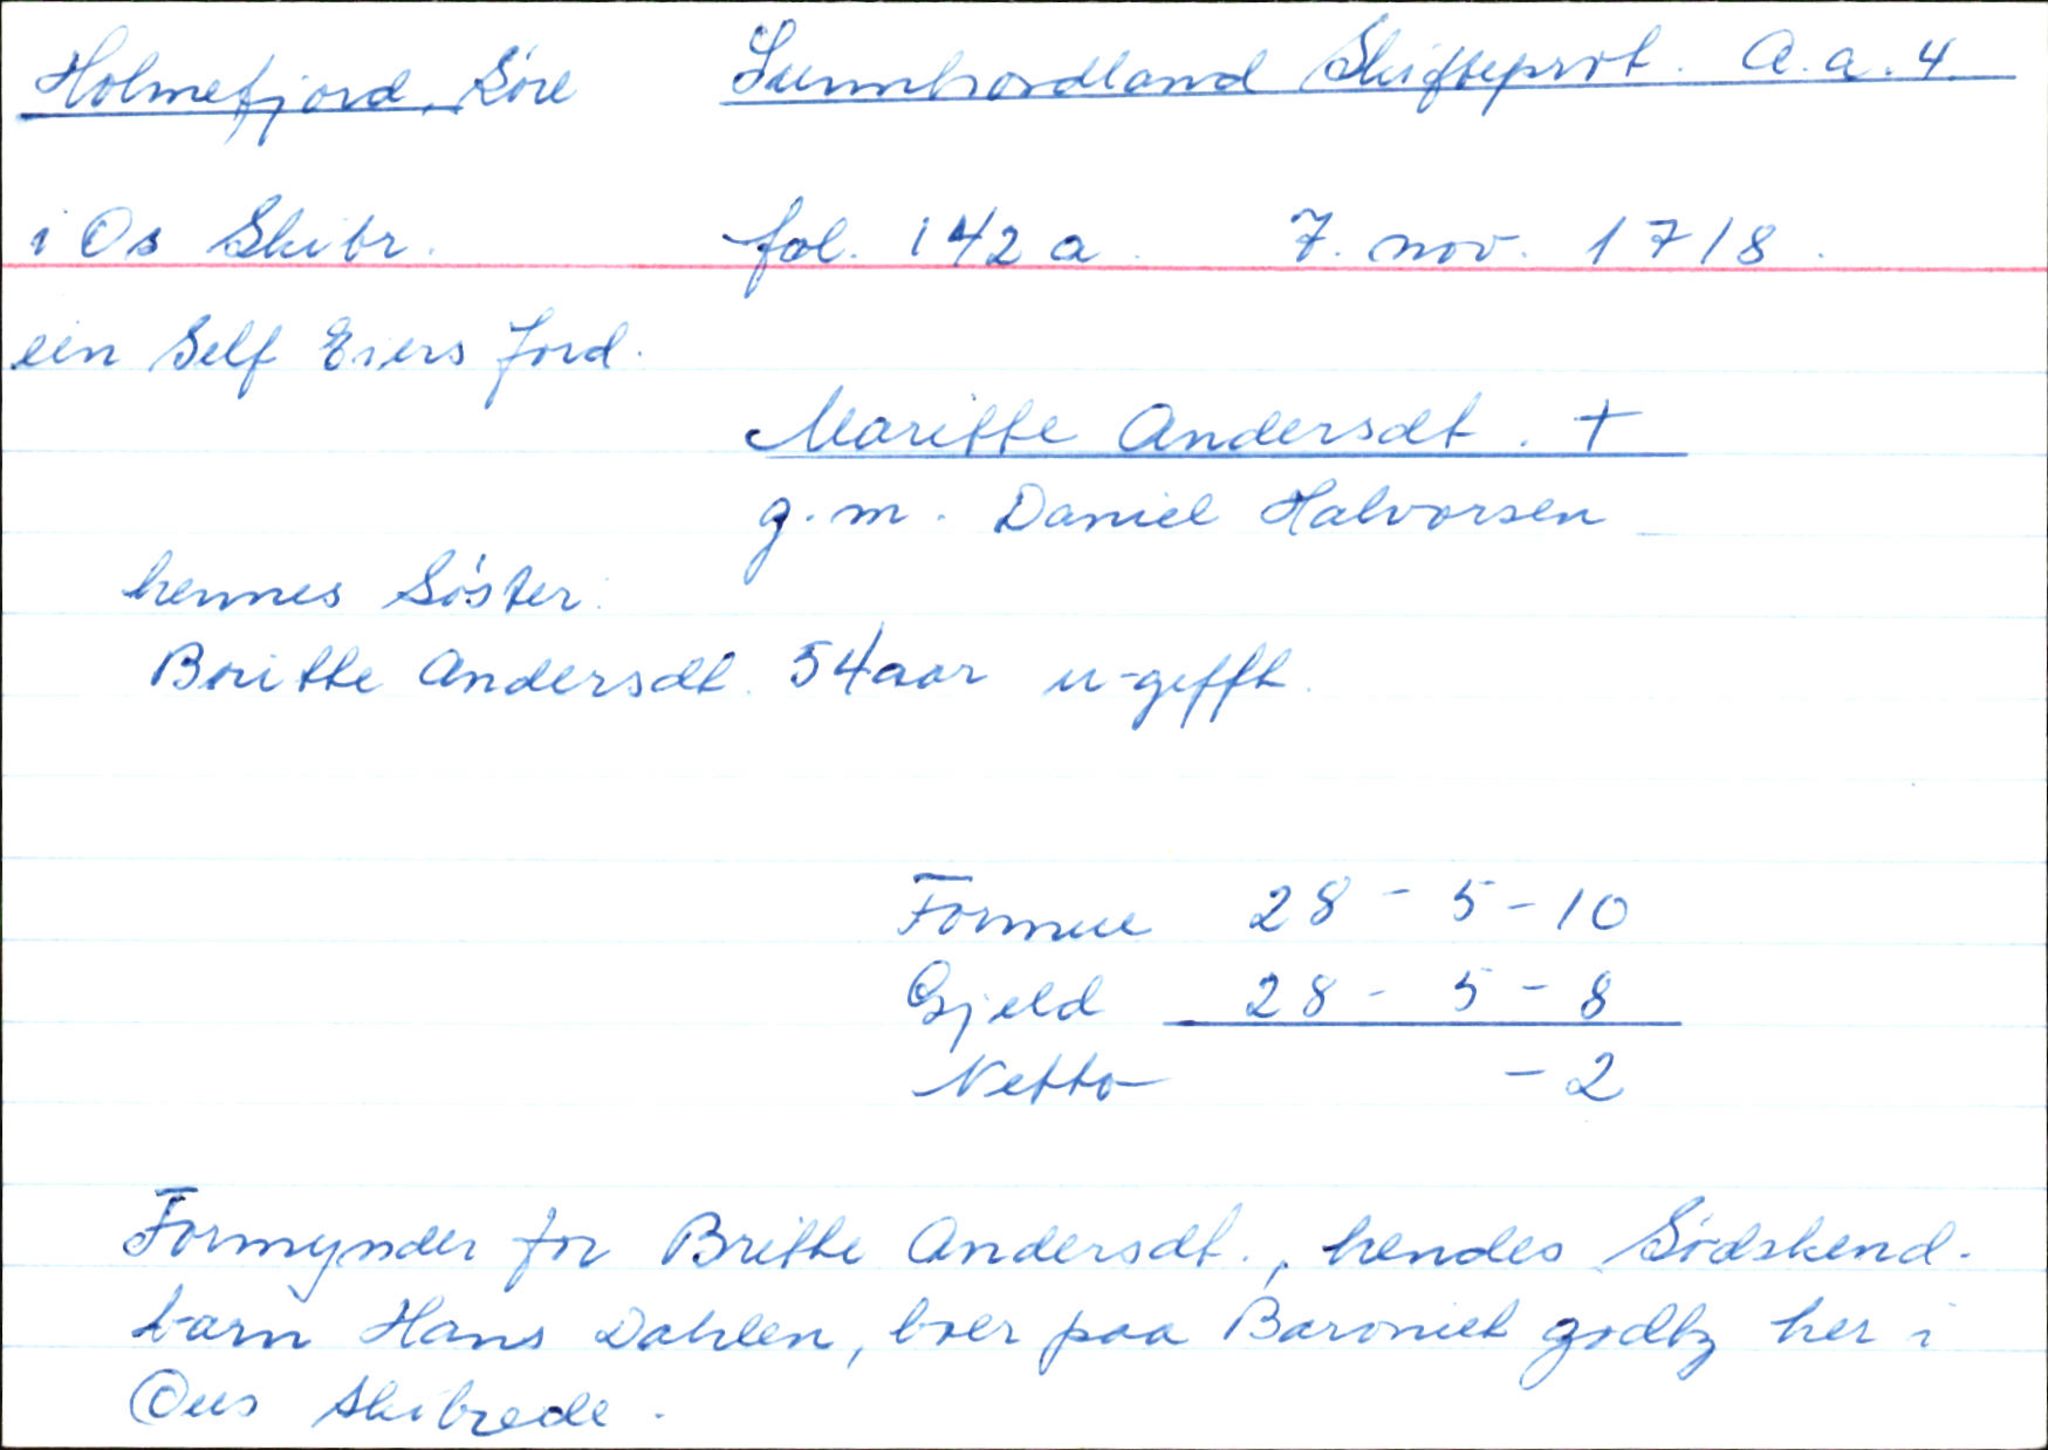 Holmefjord, Søre Sunnhordland Skifteprot. A.a.4.
i Os Skibr. fol. 142 a. 7. nov. 1718.
ein Self Eiers Jord.
Maritte Andersdt. +
g.m. Daniel Halvorsen
hennes Søster:
Britte Andersdt. 54 aar u-gifft.
Formue 28 - 5 - 10
Gjeld 28 - 5 - 8
Netto - 2
Formynder for Britte Andersdt., hendes Sødskend-
barn Hans Dahlen, boer paa Baroniet godtz her i
Ous skibrede.